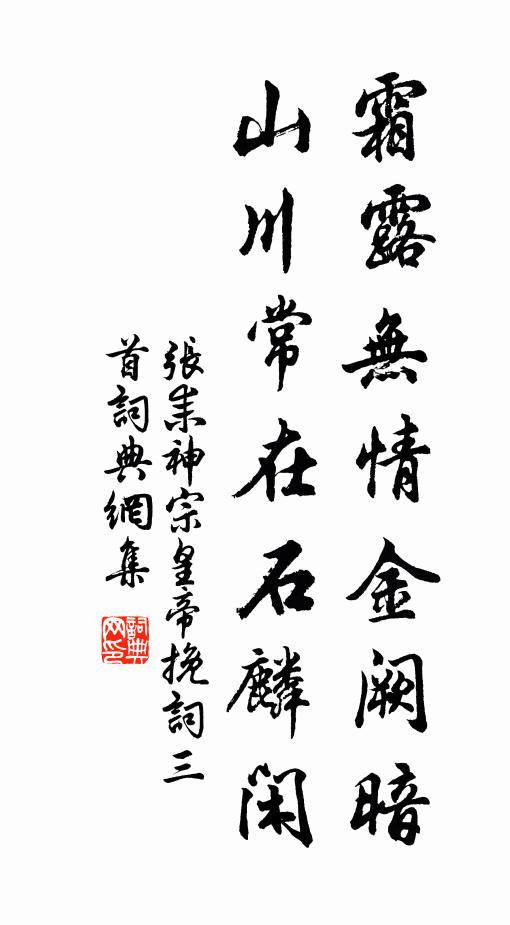 霜露無情金闕暗
山川常在石麟閑
張耒神宗皇帝挽詞三
首詞典網集
詞典
网印